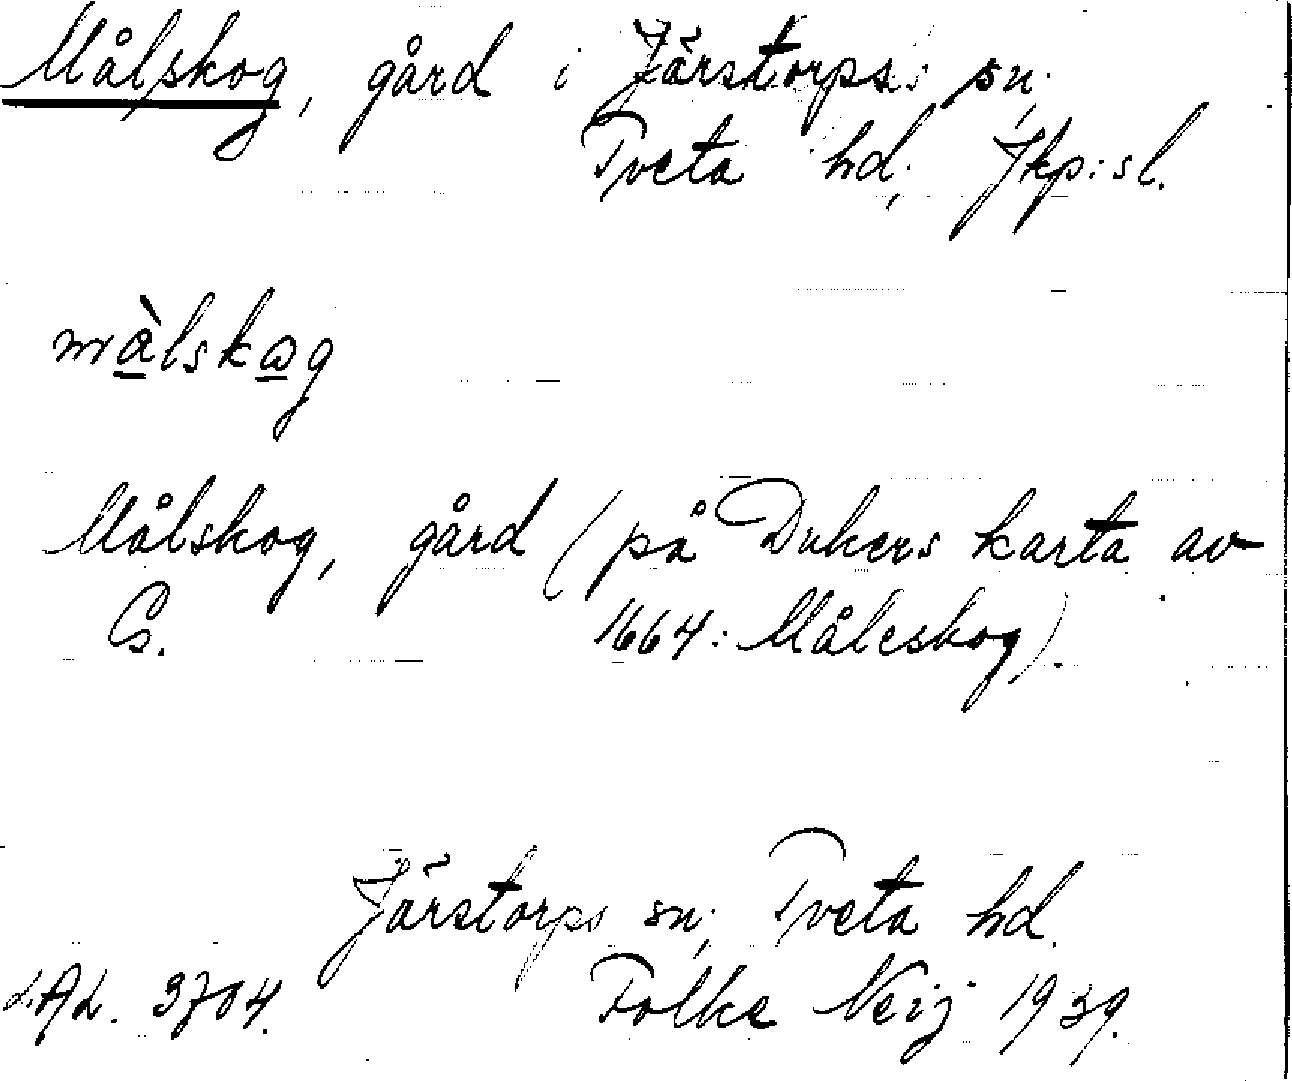 Målskog, gård i Järstorps sn,
Tveta hd, Jkp:s l.
målskog
Målskog, gård (på Dukers karta av
G. 1664: Måleskog).
Järstorps sn, Tveta hd.
LAL. 3704. Folke Neij 1939.